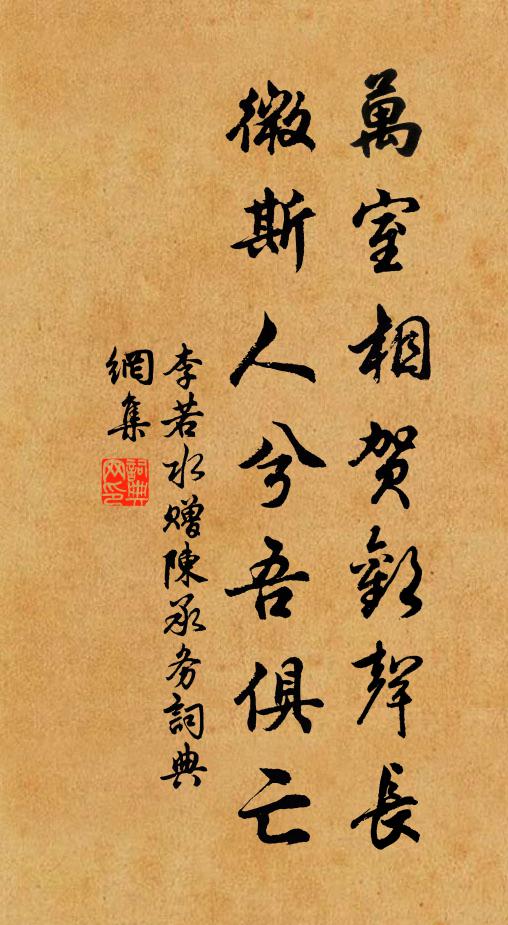 萬室相贺歡聲長
微斯人兮吾俱亡
李若水赠陳承务詞典
網集
詞典网印